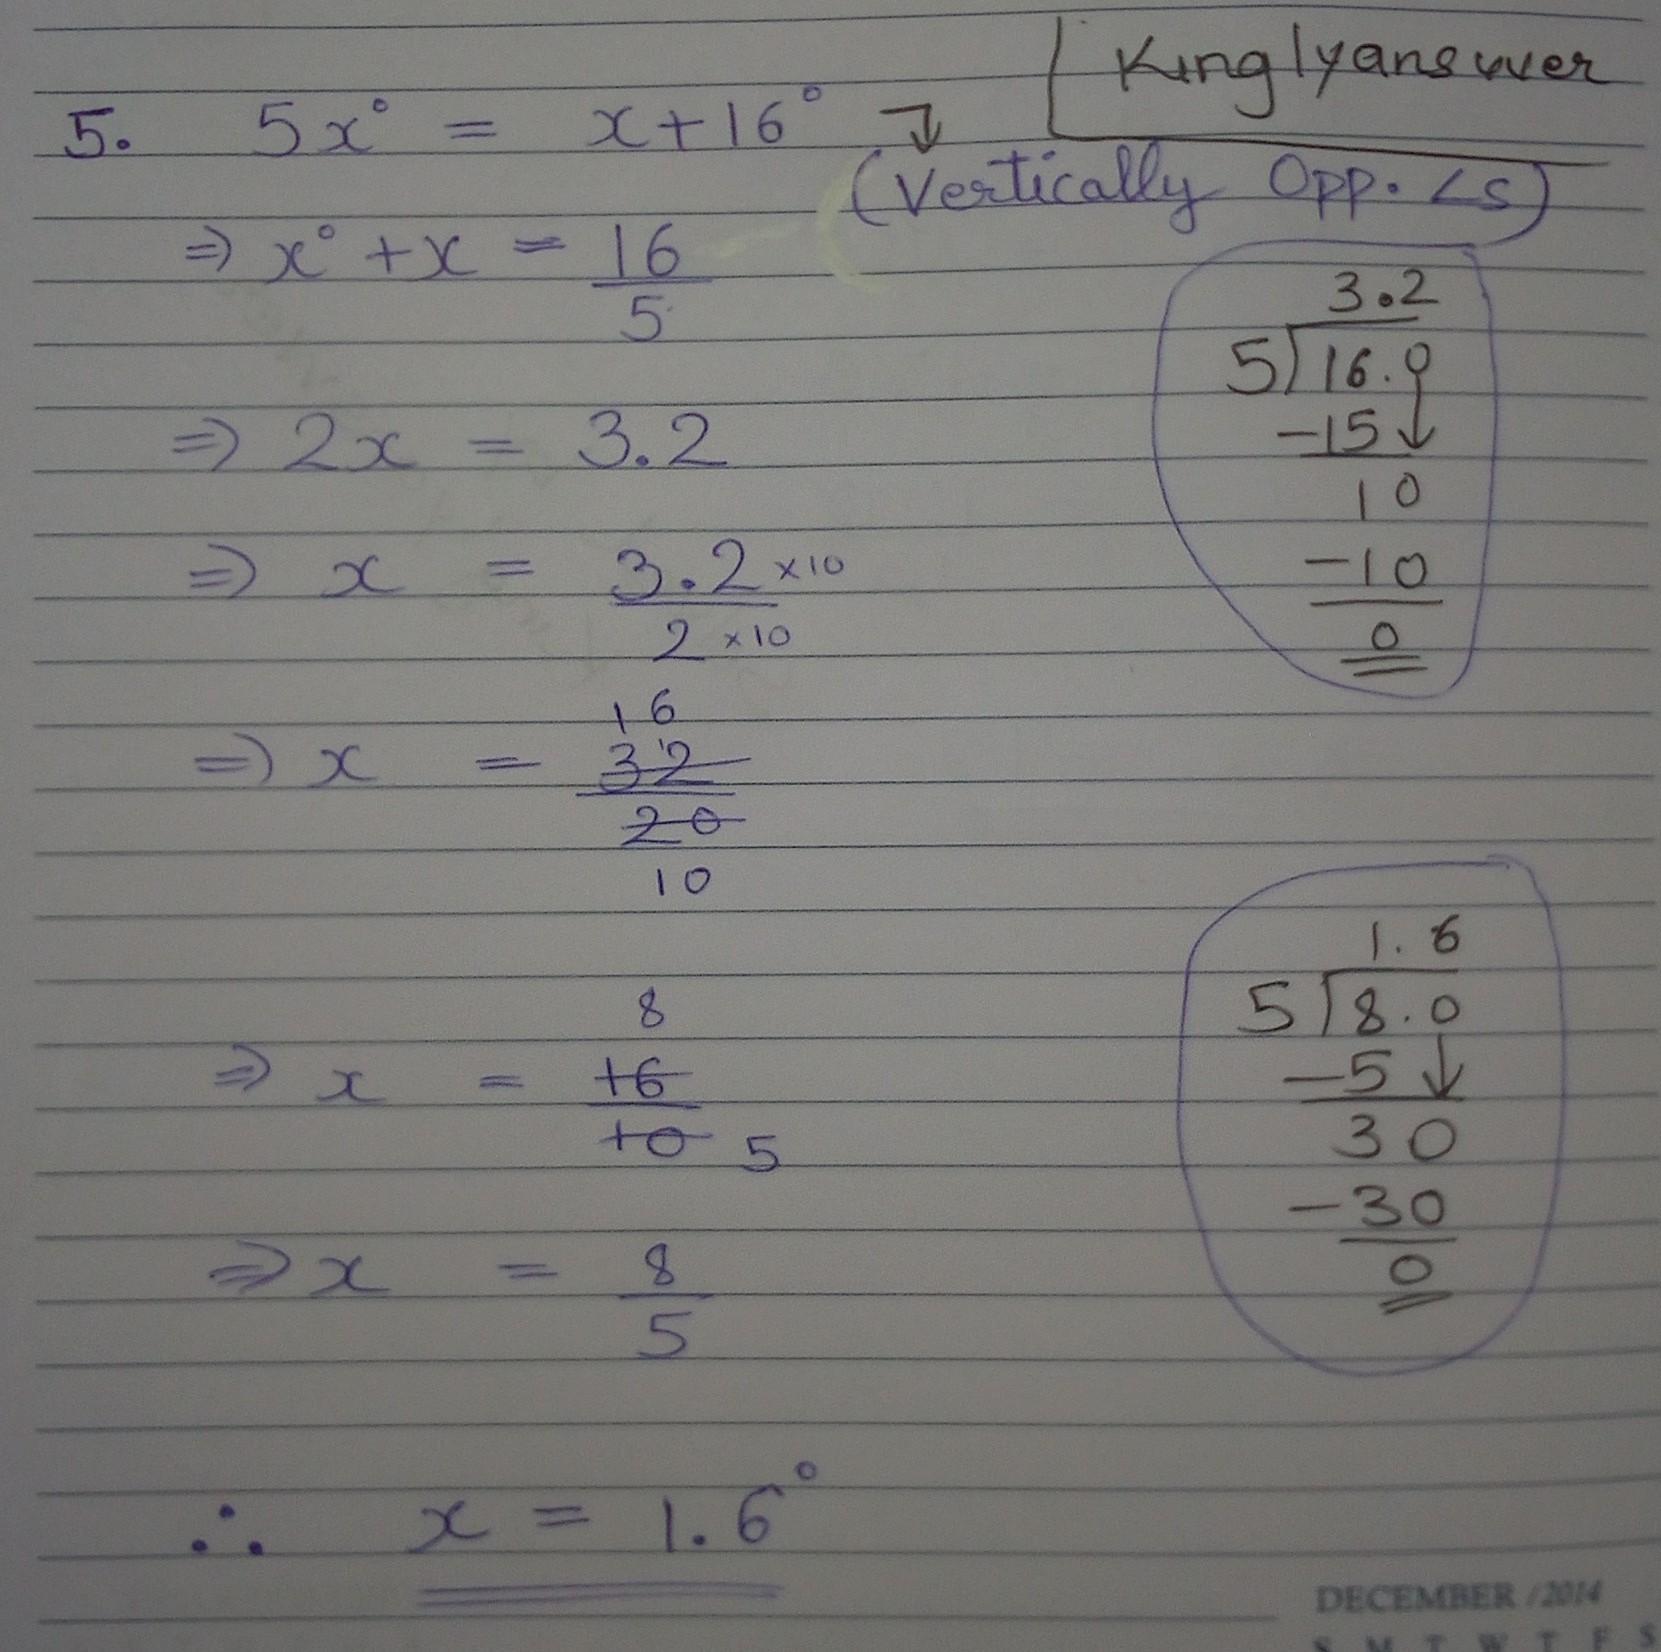 Kinglyanswer
5. 5x° = x+16° ↴
(Vertically Opp. ∠s)
⇒ x° + x = 16/5
⇒ 2x = 3.2
⇒ x = 3.2 ×10
2 ×10
16
⇒ x = 32
20
10
8
⇒ x = 16
10 5
⇒ x = 8/5
∴ x = 1.6°
3.2
5)16.0
-15↓
10
-10
0
1.6
5)8.0
-5↓
30
-30
0
DECEMBER /2014
S M T W T F S